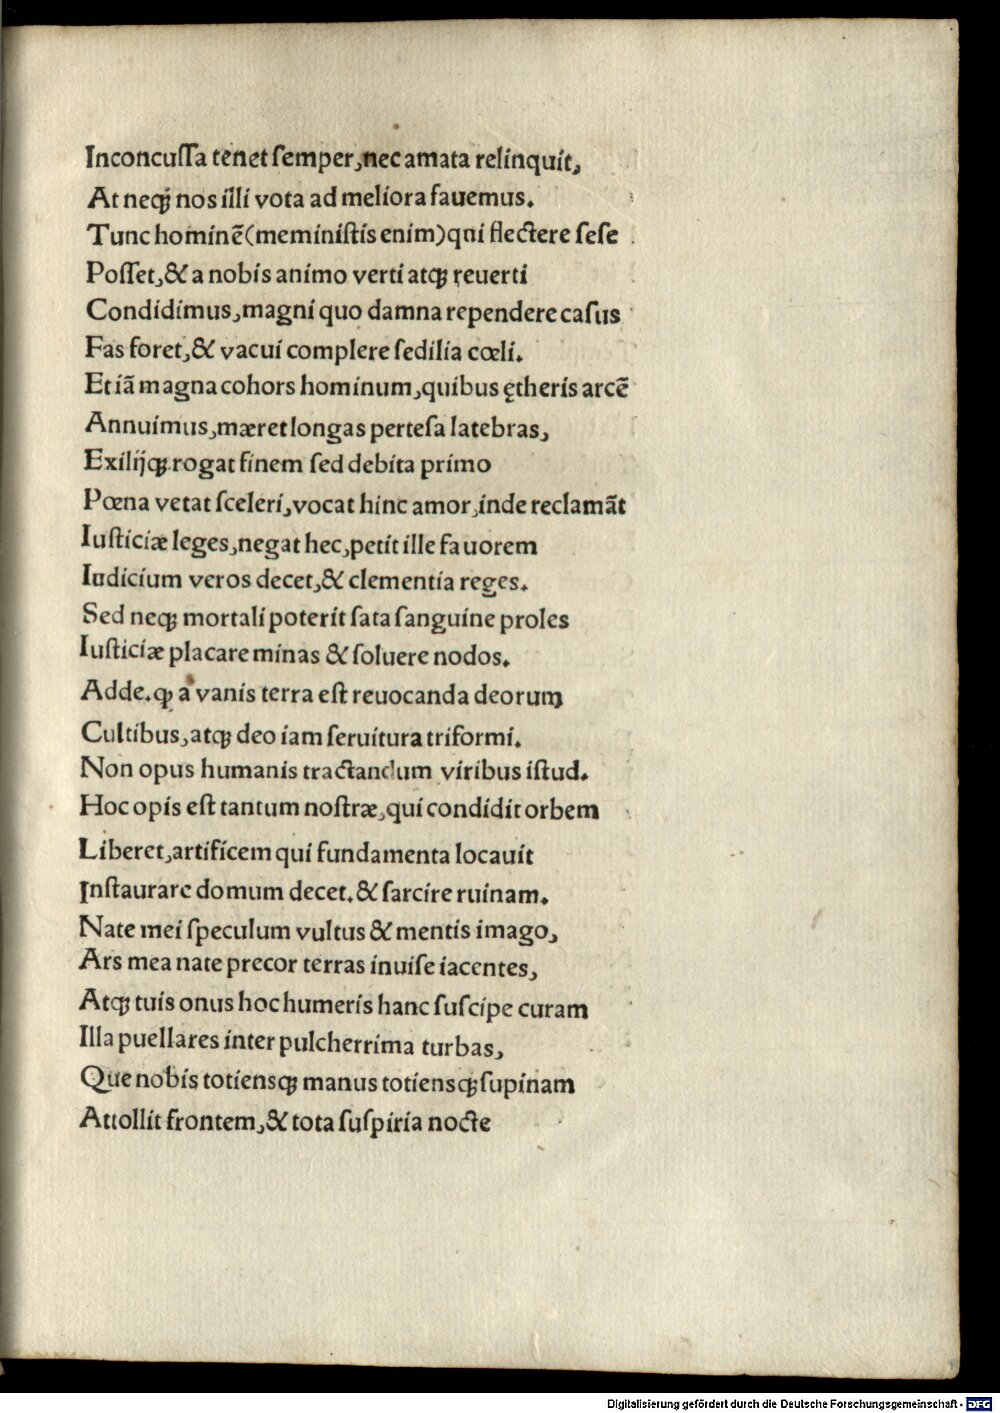 Inconcuſſa tenet ſemper,nec amata relinquit,
At neqꝫ nos illi vota ad meliora fauemus.
Tunc hominē(meminiſtis enim)qui flectere ſeſe
Poſſet,& a nobis animo verti atqꝫ reuerti
Condidimus,magni quo damna rependere caſus
Fas foret,& vacui complere ſedilia cœli.
Etiā magna cohors hominum,quibus ętheris arcē
Annuimus,mæret longas perteſa latebras,
Exilijqꝫ rogat finem ſed debita primo
Pœna vetat ſceleri,vocat hinc amor,inde reclamāt
Iuſticiæ leges,negat hec,petit ille fauorem
Iudicium veros decet,& clementia reges.
Sed neqꝫ mortali poterit ſata ſanguine proles
Iuſticiæ placare minas & ſoluere nodos.
Adde.qꝫ a vanis terra eſt reuocanda deorum
Cultibus,atqꝫ deo iam ſeruitura triformi.
Non opus humanis tractandum viribus iſtud.
Hoc opis eſt tantum noſtræ,qui condidit orbem
Liberet,artificem qui fundamenta locauit
Inſtaurare domum decet.& ſarcire ruinam.
Nate mei ſpeculum vultus & mentis imago,
Ars mea nate precor terras inuiſe iacentes,
Atqꝫ tuis onus hoc humeris hanc ſuſcipe curam
Illa puellares inter pulcherrima turbas,
Que nobis totiensqꝫ manus totiensqꝫ ſupinam
Attollit frontem,& tota ſuſpiria nocte
Digitalisierung gefördert durch die Deutsche Forschungsgemeinschaft - DFG